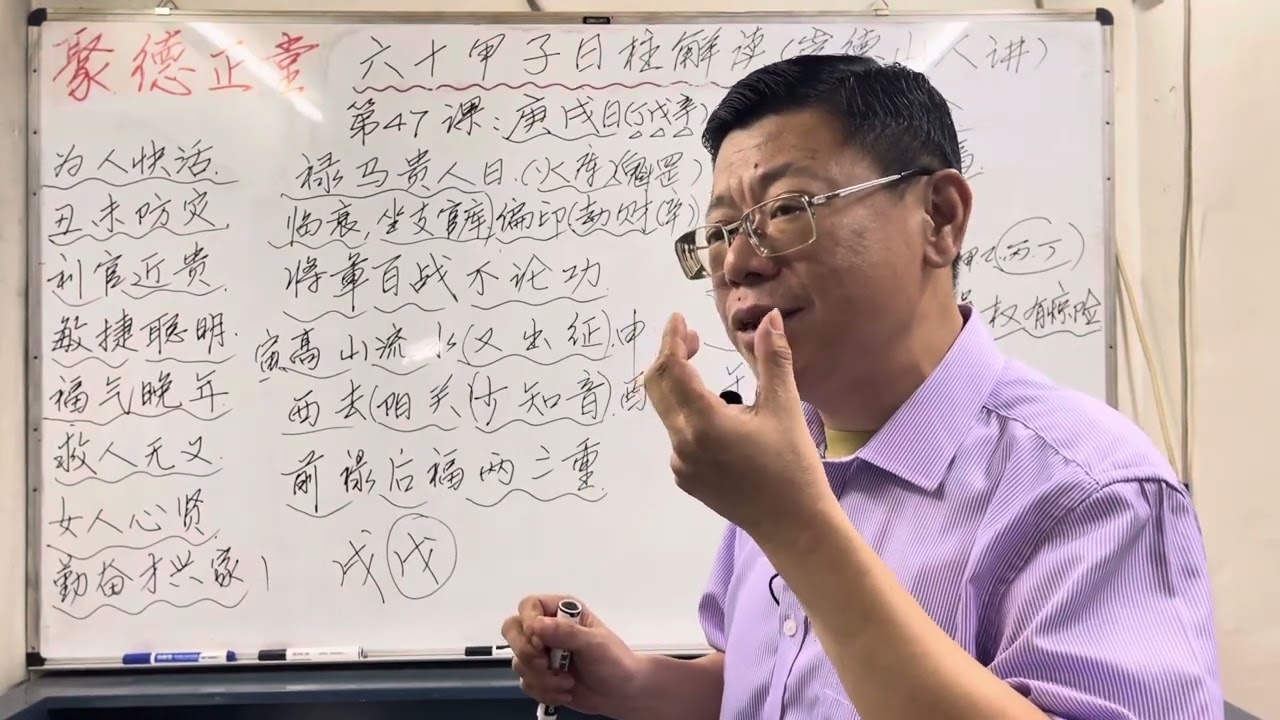 聚德正堂
六十甲子日柱解读(崇德山人讲)
第47课:庚戌日(丁戊辛)
为人快活.
丑未防灾.
利官近贵.
敏捷聪明.
福气晚年.
救人无义.
女人心贤.
勤奋才兴家
禄马贵人日.(火库)(魁罡)
临衰,坐支官库)偏印(劫财(辛)
将军百战不论功.
寅高山流水(又出征).申
西去(阳关)少知音)酉
前禄后福两三重.
戌 戊
丙丁)
权有惊险